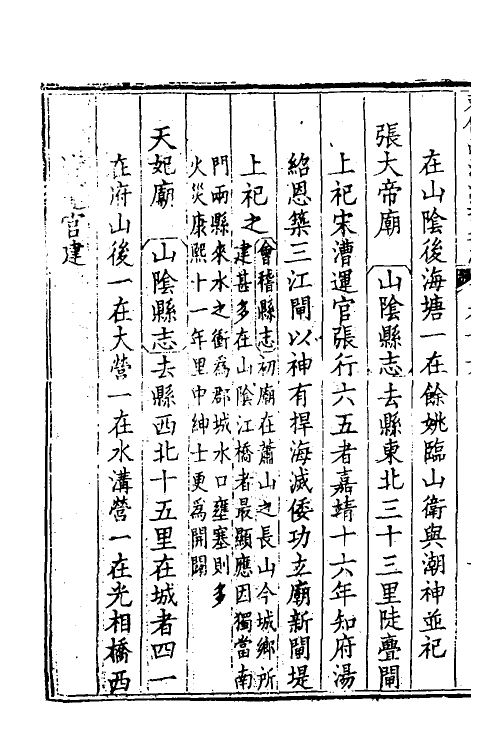 在山陰後海塘一在餘姚臨山衛與潮神並祀
張大帝廟 山陰縣志去縣東北三十三里陡亹閘
上祀宋漕運官張行六五者嘉靖十六年知府湯
紹恩築三江閘以神有捍海滅倭功立廟新閘堤
上祀之 會稽縣志初廟在蕭山之長山今城鄉所
建甚多在山陰江橋者最顯應因獨當南
門兩縣來水之衝為郡城水口壅塞則多
火災康熙十一年里中紳士更為開闢
天妃廟 山陰縣志去縣西北十五里在城者四一
在府山後一在大營一在水溝營一在光相橋西
官建